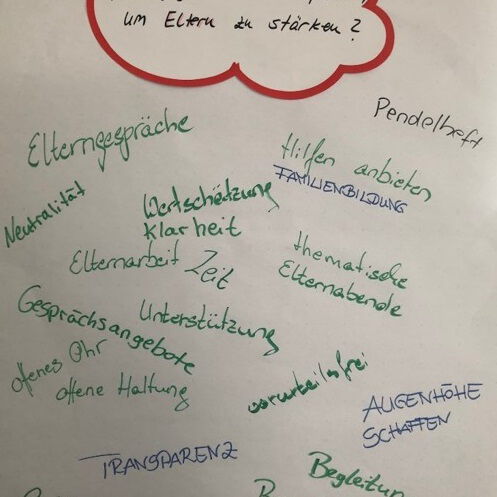 um Eltern zu stärken?
Pendelheft
Elterngespräche
Hilfen anbieten
FAMILIENBILDUNG
Neutralität
Wertschätzung
Klarheit
Elternarbeit
Zeit
thematische
Elternabende
Gesprächsangebote
Unterstützung
offenes Ohr
offene Haltung
vorurteilsfrei
AUGENHÖHE
SCHAFFEN
TRANSPARENZ